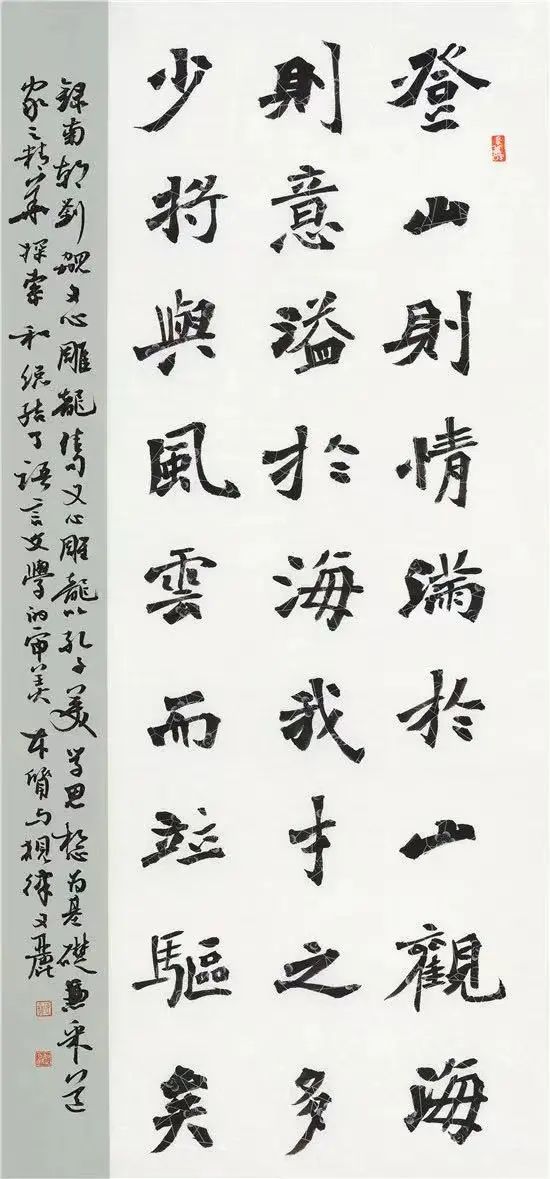 登山則情滿於山觀海
則意溢於海我才之多
少將與風雲而竝驅矣
錄南朝劉勰文心雕龍文心雕龍以孔子美學思想为基礎兼采道
家之精華探索和總結了語言文學的审美本質与規律文麗